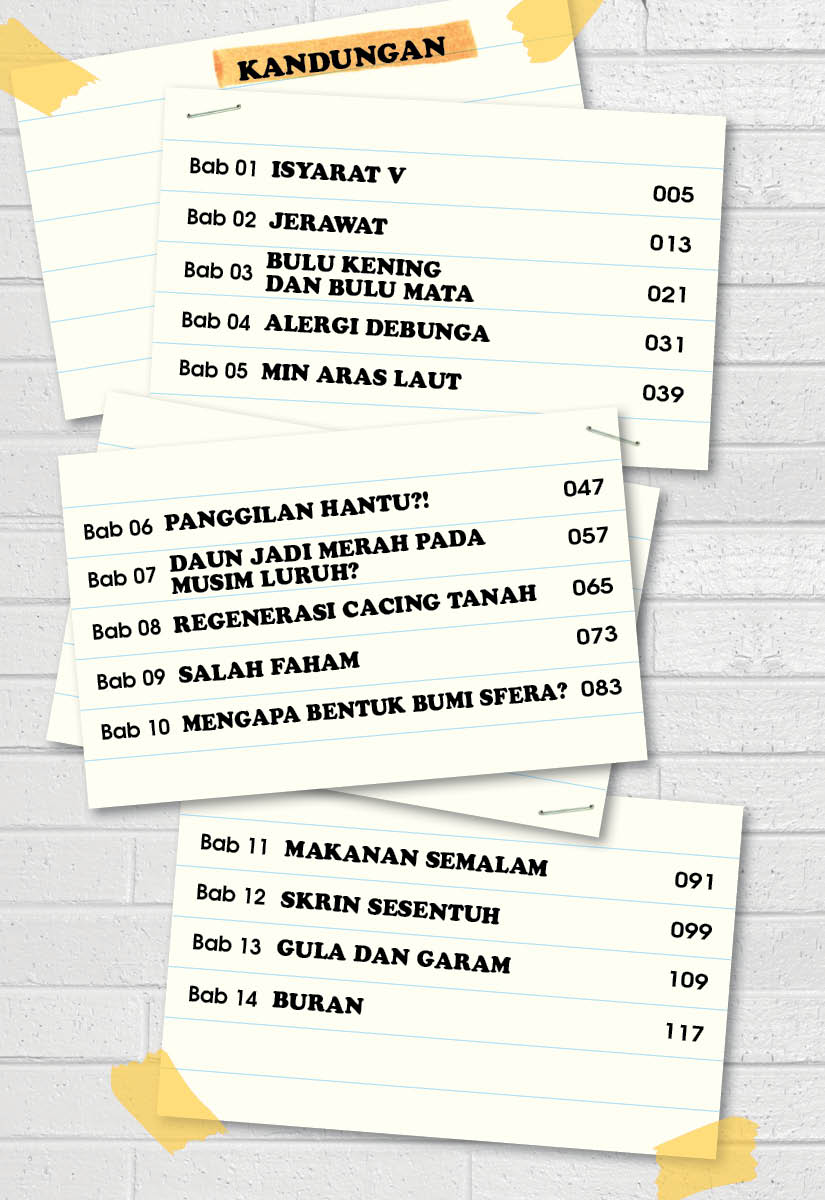 KANDUNGAN
Bab 01 ISYARAT V 005
Bab 02 JERAWAT 013
Bab 03 BULU KENING
DAN BULU MATA 021
Bab 04 ALERGI DEBUNGA 031
Bab 05 MIN ARAS LAUT 039
Bab 06 PANGGILAN HANTU?! 047
Bab 07 DAUN JADI MERAH PADA
MUSIM LURUH? 057
Bab 08 REGENERASI CACING TANAH 065
Bab 09 SALAH FAHAM 073
Bab 10 MENGAPA BENTUK BUMI SFERA? 083
Bab 11 MAKANAN SEMALAM 091
Bab 12 SKRIN SESENTUH 099
Bab 13 GULA DAN GARAM 109
Bab 14 BURAN 117